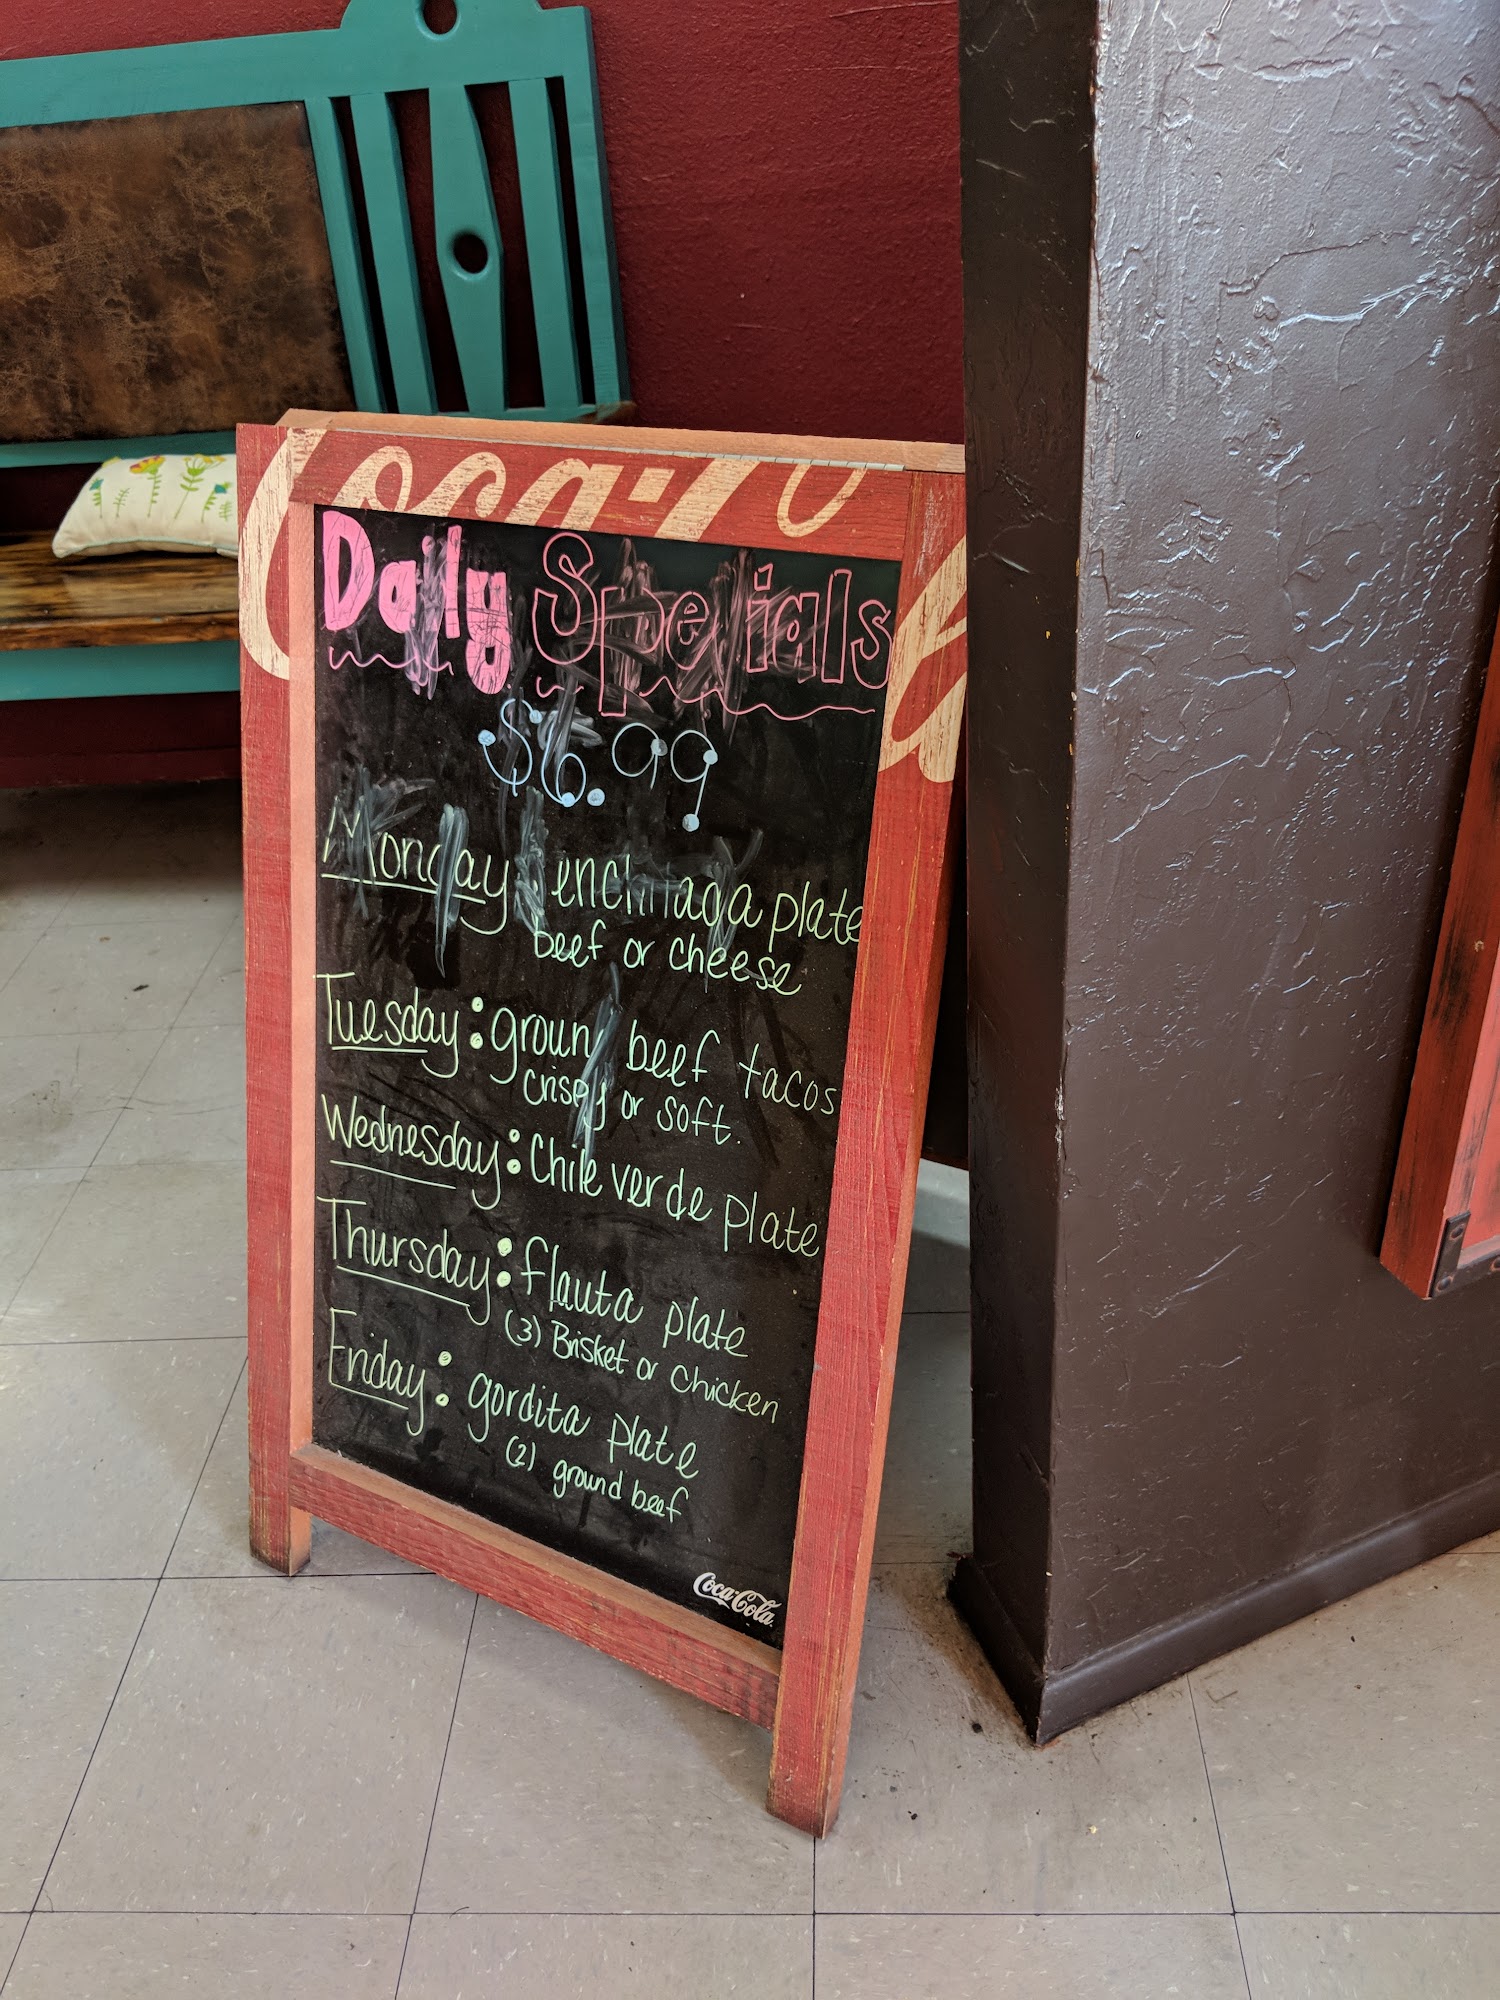 Coca-Cola
Daily Specials
$6.99
Monday: enchilada plate
beef or cheese
Tuesday: ground beef tacos
crispy or soft.
Wednesday: Chile verde plate
Thursday: flauta plate
(3) Brisket or chicken
Friday: gordita plate
(2) ground beef
Coca-Cola